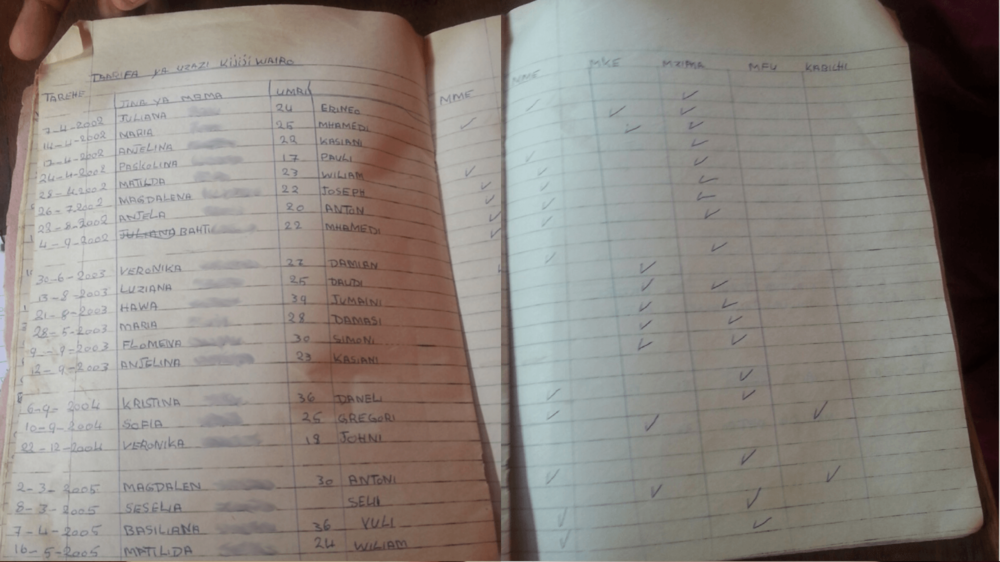 TAARIFA YA UZAZI KIJIJI WAIRO
TAREHE JINA YA MAMA UMRI MME MME MKE MZIMA MFU KABICHI
7-4-2002 JULIANA 24 ERINEO
14-4-2002 MARIA 25 MHAMEDI
17-4-2002 ANJELINA 28 KASIANI
24-4-2002 PASKOLINA 17 PAULI
28-4-2002 MATILDA 23 WILIAM
26-7-2002 MAGDALENA 22 JOSEPH
23-8-2002 ANJELA 20 ANTON
4-9-2002 JULIANA BAHTI 22 MHAMEDI
30-6-2003 VERONIKA 27 DAMIAN
13-8-2003 LUZIANA 25 DAUDI
21-8-2003 HAWA 39 JUMAINI
28-5-2003 MARIA 28 DAMASI
9-9-2003 FLOMENA 30 SIMONI
12-9-2003 ANJELINA 23 KASIANI
6-9-2004 KRISTINA 36 DANELI
10-9-2004 SOFIA 25 GREGORI
22-12-2004 VERONIKA 18 JOHNI
2-3-2005 MAGDALEN 30 ANTONI
8-3-2005 SESELIA
7-4-2005 BASILIANA 36 YULI
16-5-2005 MATILIDA 24 WILIAM